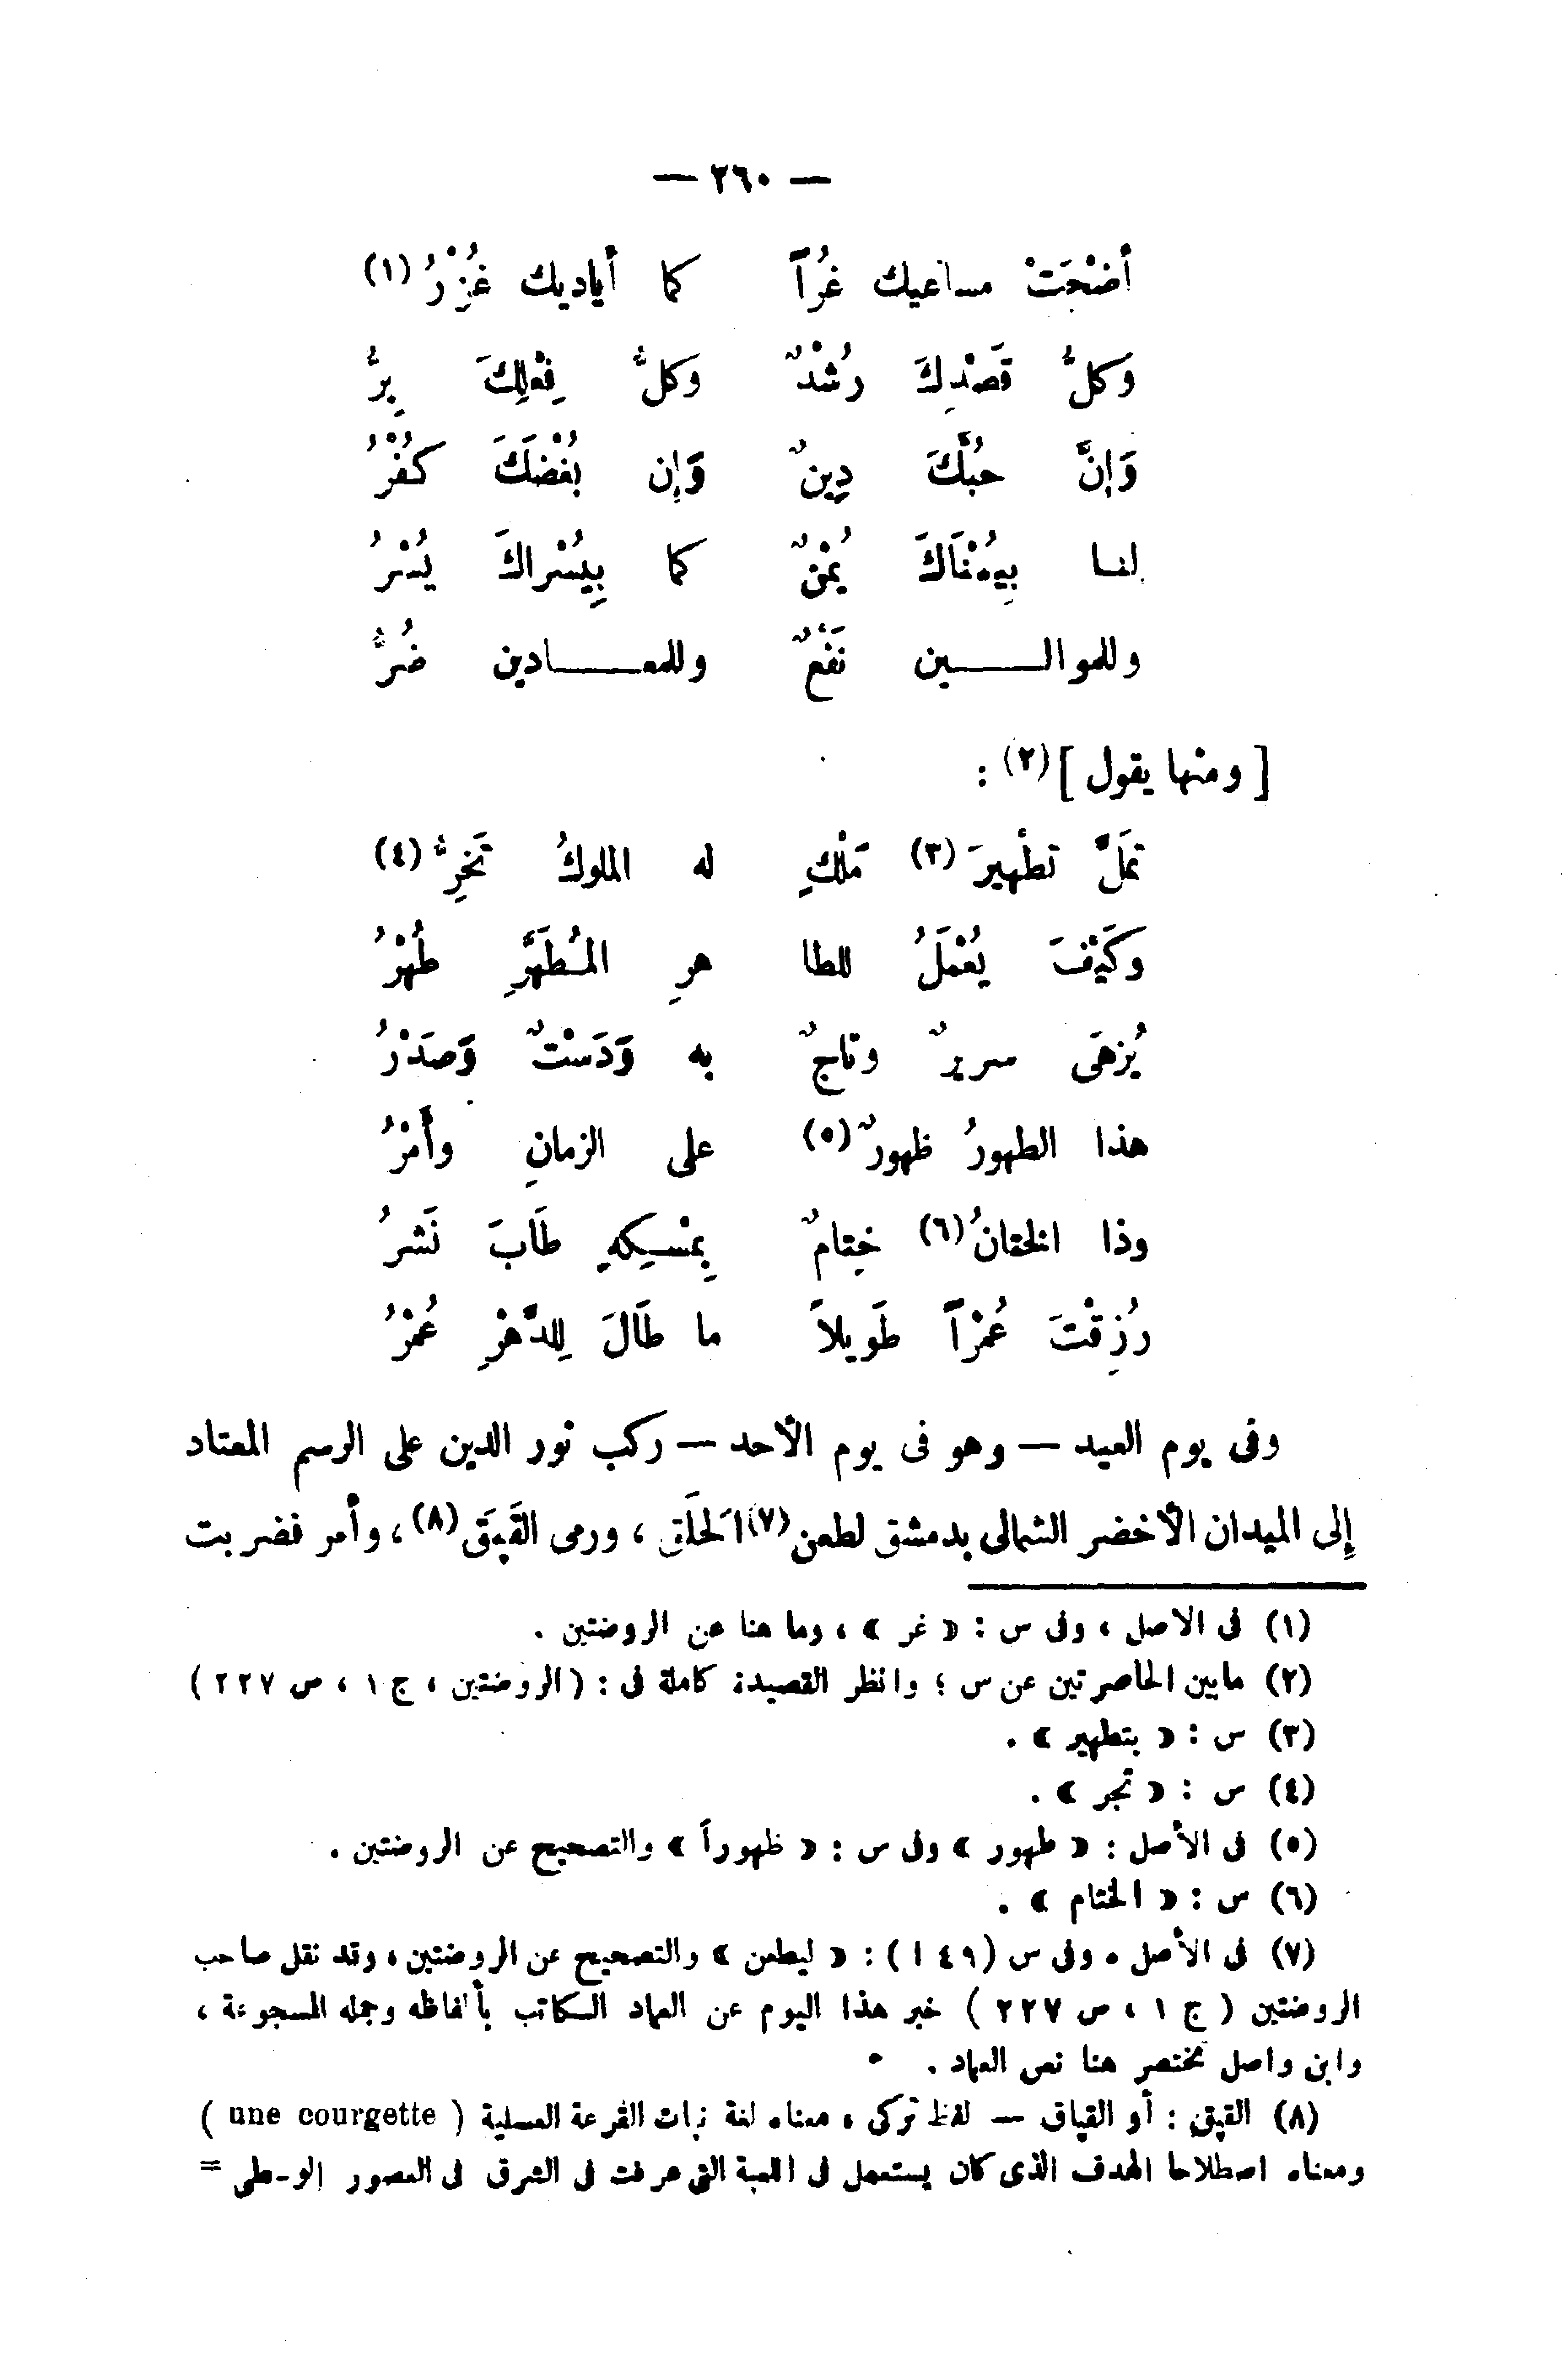 — ٢٦٠ —
أضْحَتْ مساعيك غُرّاً كما أياديك غُزْرُ (١)
وَكلُّ قَصْدِكَ رُشْدٌ وكلُّ فِعْلِكَ بِرُّ
وَإنَّ حُبَّكَ دِينٌ وَإن بُغْضَكَ كُفْرُ
لنا بِيُمْنَاكَ يُمْنٌ كما بِيُسْراكَ يُسْرُ
وللموالـــين نَفْعٌ وللمعـــادين ضُرُّ
[ ومنها يقول ] (٢) :
تَمَلَّ تطْهيرَ (٣) مَلْكٍ له الملوكُ تَخِرُّ (٤)
وَكَيْفَ يُعْمَلُ للطا هرِ المُطَهَّرِ طُهْرُ
يُزهَى سريرٌ وتاجٌ به وَدَسْتٌ وَصَدْرُ
هذا الطهورُ ظهورٌ (٥) على الزمانِ وأَمْرُ
وذا الختانُ (٦) خِتامٌ بِمْسِكهِ طَابَ نَشرُ
رُزِقْتَ عُمْرَاً طَويلاً ما طَالَ لِلدَّهْرِ عُمْرُ
وفى يوم العيد — وهو فى يوم الأحد — ركب نور الدين على الرسم المعتاد
إلى الميدان الأخضر الشمالى بدمشق لطعن (٧) الَحلَق ، ورمى القَبَق (٨) ، وأمر فضربت
(١) فى الاصل ، وفى س : « غر » ، وما هنا عن الروضتين .
(٢) مابين الحاصرتين عن س ؛ وانظر القصيدة كاملة فى : ( الروضتين ، ج ١ ، ص ٢٢٧ )
(٣) س : « بتطهير » .
(٤) س : « تجر » .
(٥) فى الأصل : « طهور » وفى س : « ظهوراً » والتصحيح عن الروضتين .
(٦) س : « الختام » .
(٧) فى الأصل ، وفى س (٤٩ ا) : « ليطعن » والتصحيح عن الروضتين ، وقد نقل صاحب
الروضتين ( ج ١ ، ص ٢٢٧ ) خبر هذا اليوم عن العماد الكاتب بألفاظه وجمله المسجوعة ،
وابن واصل يختصر هنا نص العماد .
(٨) القبق : أو القباق — لفظ تركى ، معناه لغة نبات القرعة العسلية ( une courgette )
ومعناه اصطلاحا الهدف الذى كان يستعمل فى اللعبة التى عرفت فى الشرق فى العصور الوسطى =